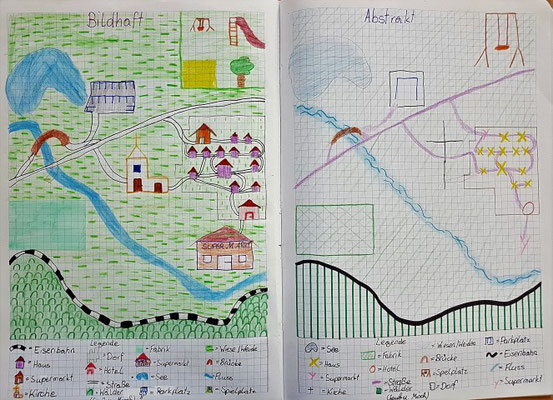 Bildhaft
SUPERMARKT
Legende
= Eisenbahn
= Haus
= Supermarkt
= Kirche
= Dorf
= Hotel
= Straße
= Wälder
= Fabrik
= Supermarkt
= See
= Parkplatz
= Wiese/Weide
= Brücke
= Fluss
= Spielplatz
Abstrakt
Legende
= See
= Haus
= Supermarkt
= Kirche
= Fabrik
= Hotel
= Straße
= Wälder
= Wiese/Weide
= Brücke
= Spielplatz
= Dorf
= Parkplatz
= Eisenbahn
= Fluss